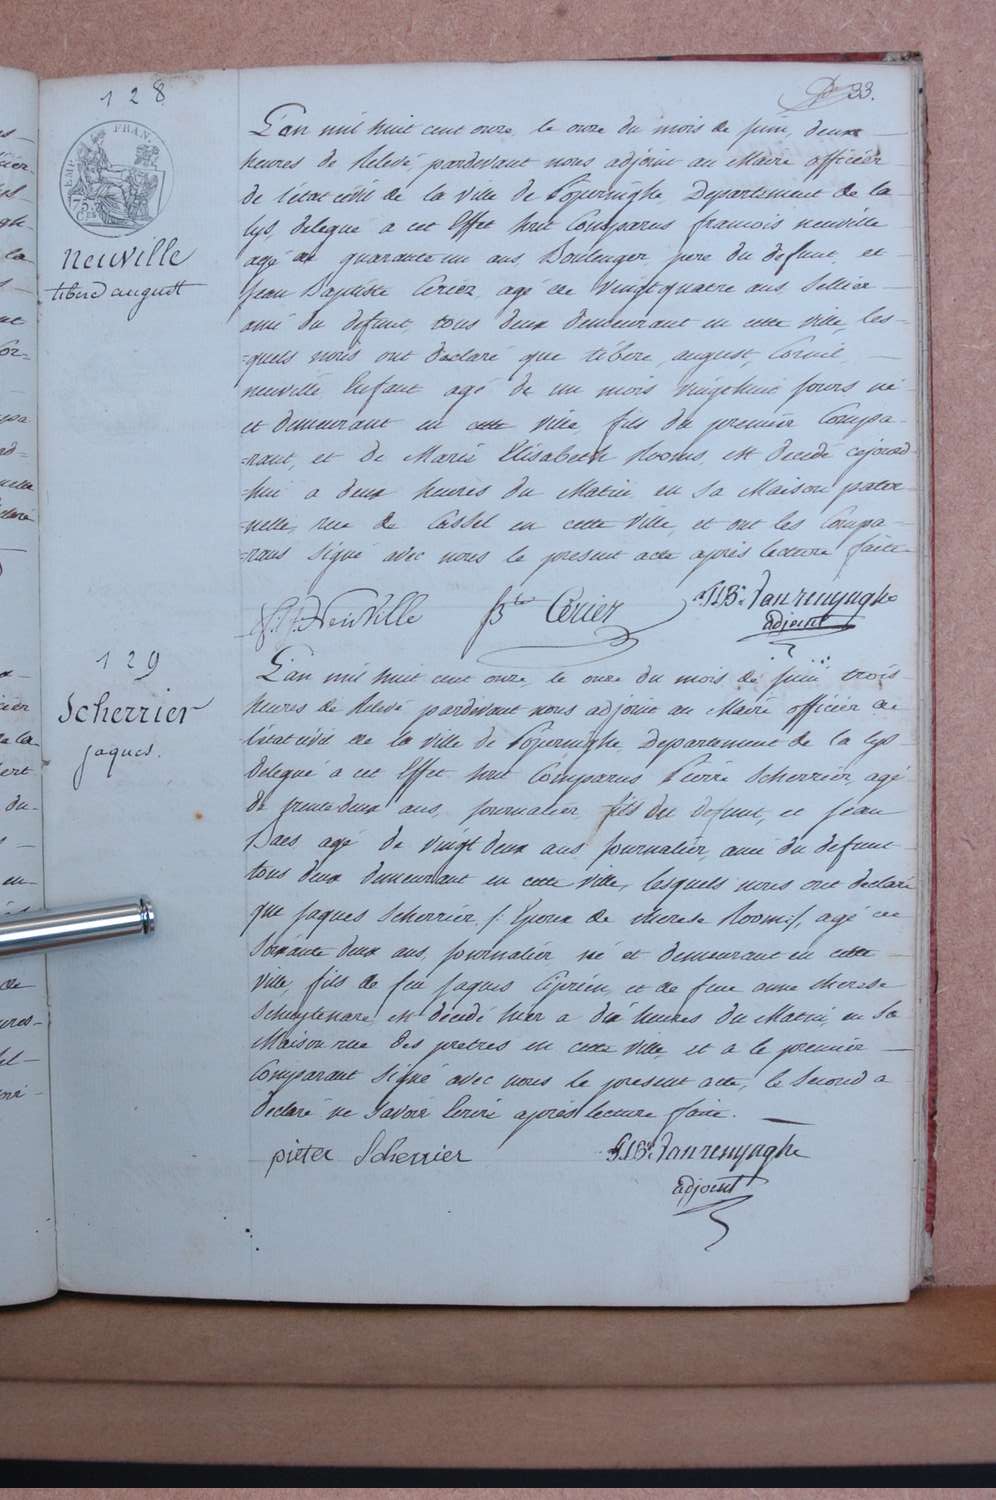 33.
128
FRAN
TEMP
75.
Cen
Neuville
tibere august
L'an mil huit cent onze, le onze du mois de juin, deux
heures de Relevé, pardevant nous adjoint au Maire officier
de l'état civil de la Ville de Poperinghe, Departement de la
Lys, delegué a cet effet sont Comparus francois neuville
agé de quarante un ans, Boulenger, pere du defunt, et
Jean Baptiste Cerier, agé de vingt quatre ans, Sellier
ami du defunt, tous deux demeurant en cette ville, les-
-quels nous ont declaré que tibere, august, Cornil,
neuville Enfant agé de un mois vingthuit jours né
et demeurant en cette ville fils du premier Compa-
-rant, et de Marie Elisabeth Rooms, est decedé cejourd-
-hui a deux heures du Matin en sa Maison pater-
-nelle, rue de Cassel en cette ville, et ont les Compa-
-rans signé avec nous le present acte après lecture faite
Neuville Bte Cerier Vanrenynghe
adjoint
129
Scherrier
jaques.
L'an mil huit cent onze, le onze du mois de juin trois
heures de Relevé pardevant nous adjoint au Maire officier de
l'état civil de la ville de Poperinghe, Departement de la Lys
delegué a cet effet sont Comparus Pierre Scherrier, agé
de trente deux ans, journalier, fils du defunt, et jean
Baes agé de vingt deux ans journalier, ami du defunt
tous deux demeurant en cette ville, lesquels nous ont declaré
que jaques Scherrier /: Epoux de therese Rooms :/, agé de
soixante deux ans, journalier né et demeurant en cette
ville, fils de feu jaques Ciprien, et de feue anne therese
est decedé hier a dix heures du Matin, en sa
Maison rue des pretres en cette ville, et a le premier
Comparant signé avec nous le present acte, le second a
declaré ne savoir Ecrire après lecture faite.
pieter Scherrier Vanrenynghe
adjoint